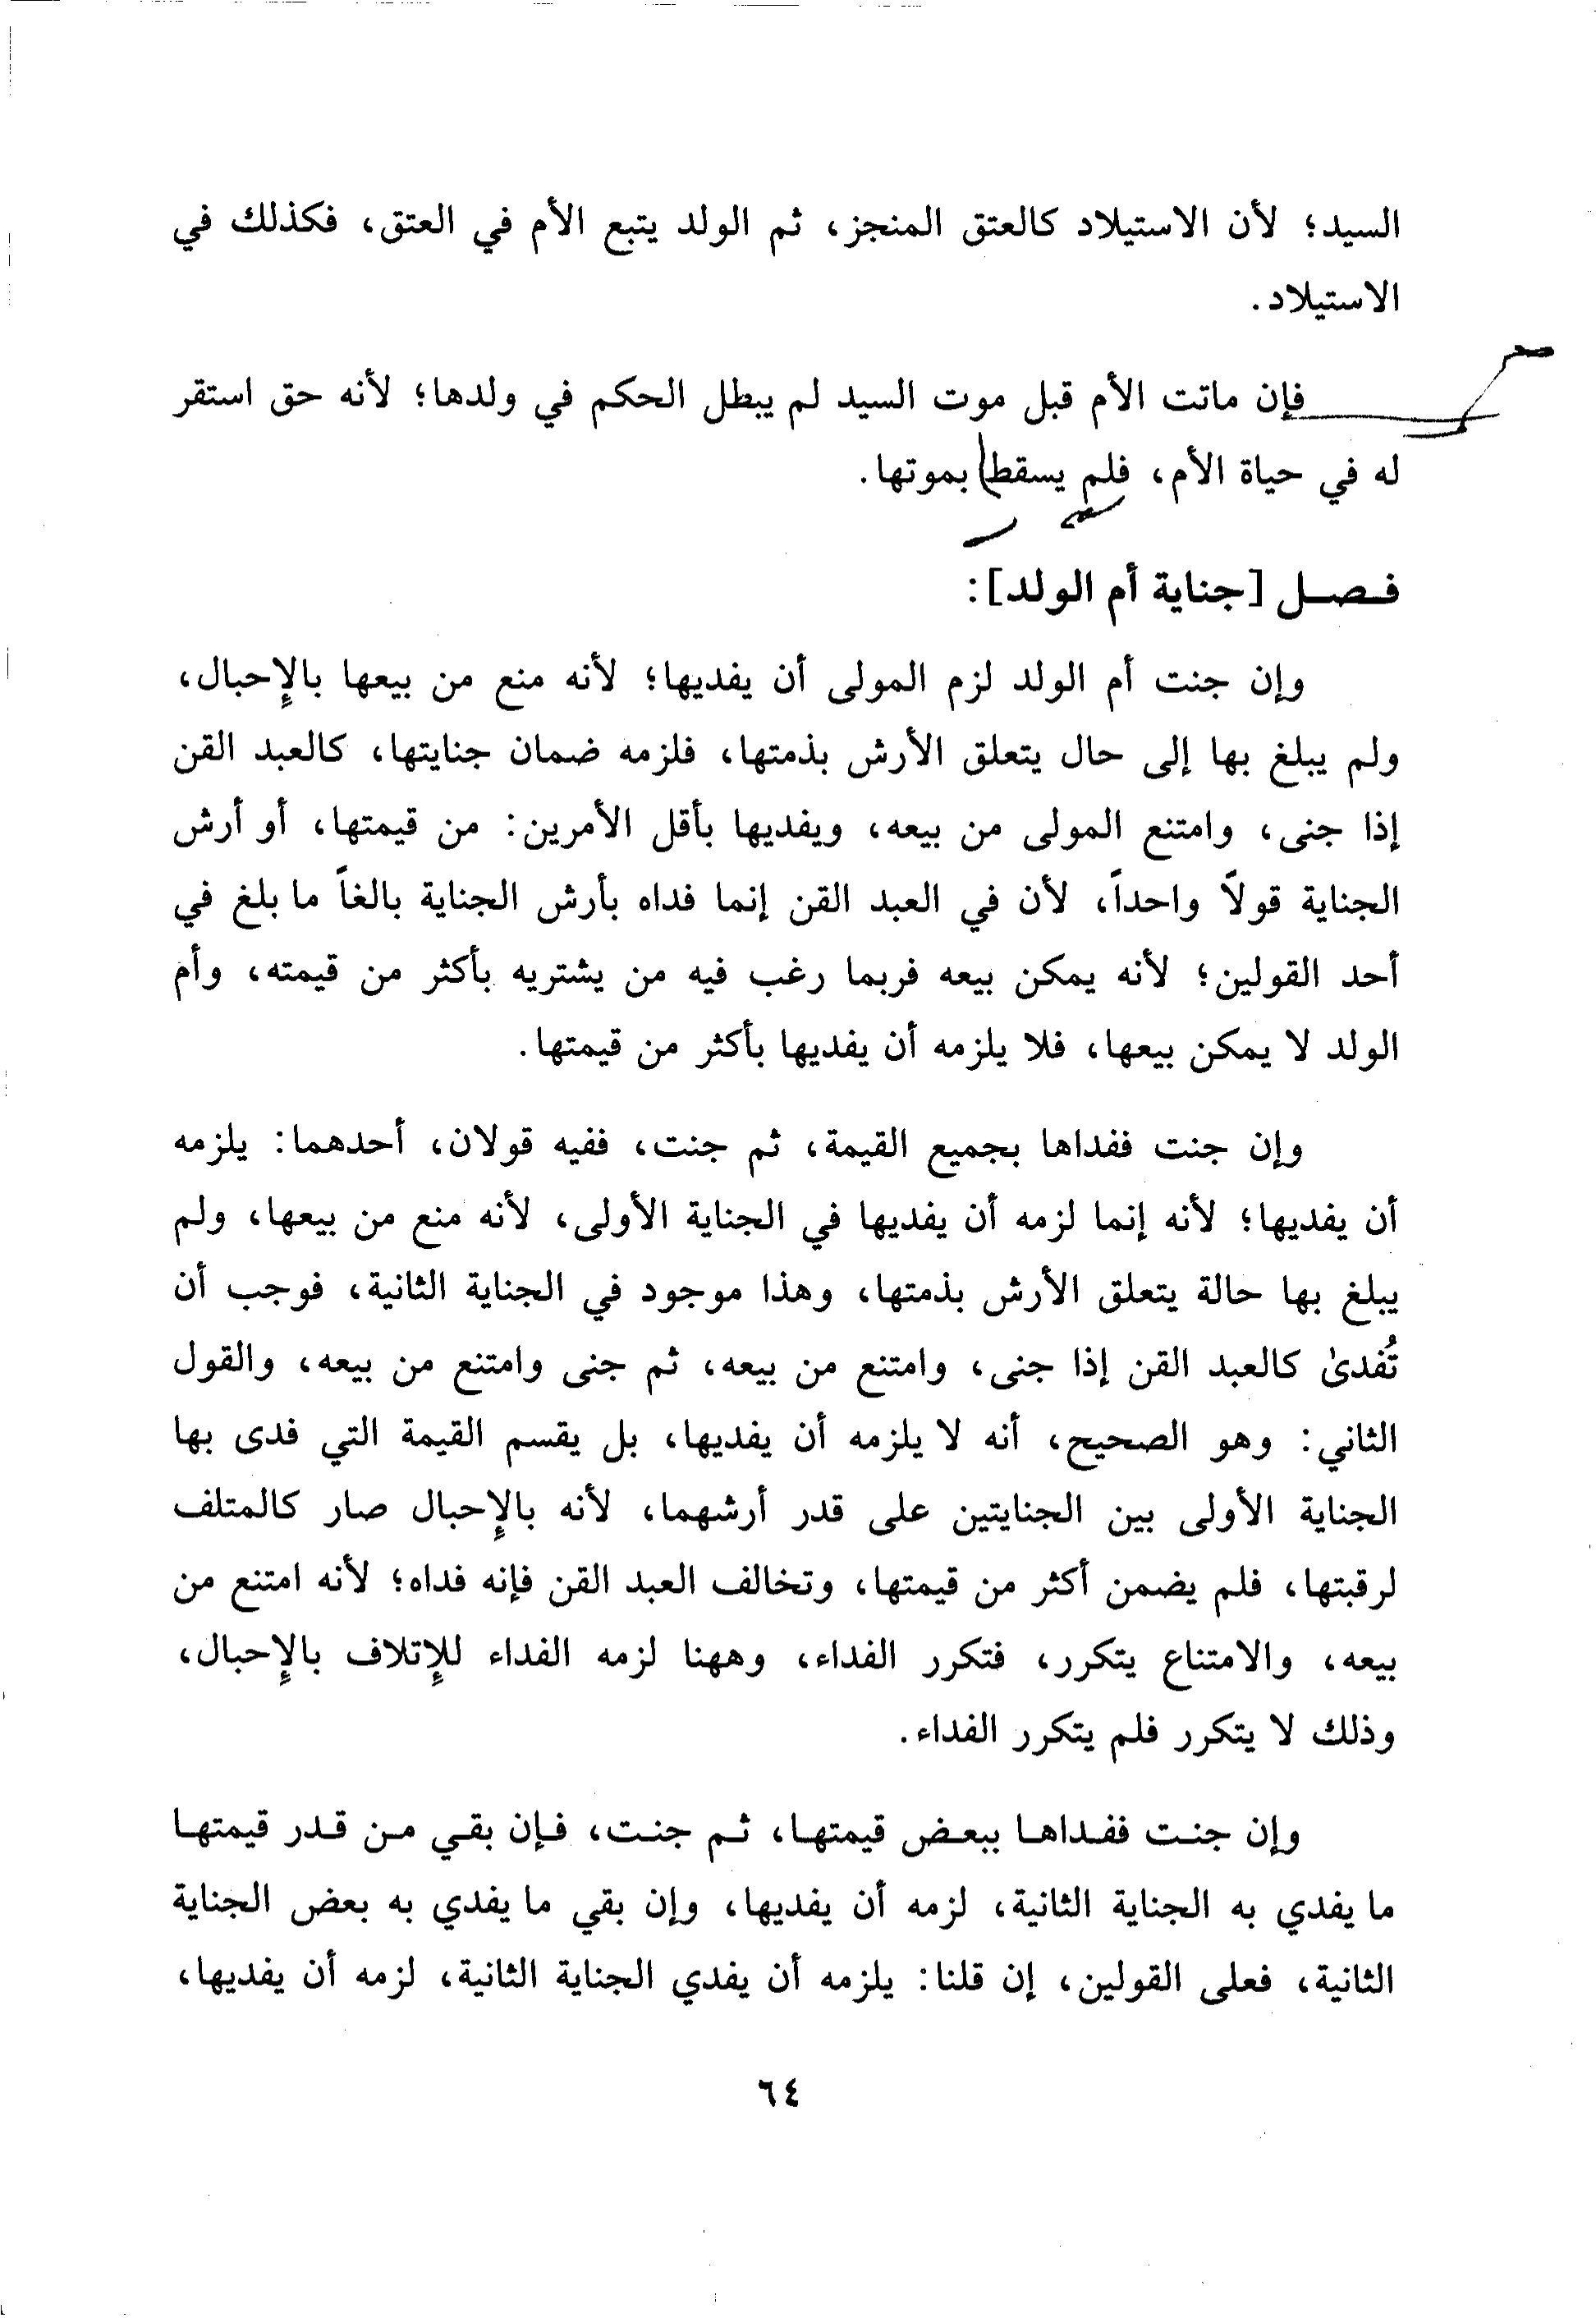 السيد؛ لأن الاستيلاد كالعتق المنجز، ثم الولد يتبع الأم في العتق، فكذلك في
الاستيلاد.
فإن ماتت الأم قبل موت السيد لم يبطل الحكم في ولدها؛ لأنه حق استقر
له في حياة الأم، فلم يسقط بموتها.
فـصـــل [جناية أم الولد]:
وإن جنت أم الولد لزم المولى أن يفديها؛ لأنه منع من بيعها بالإحبال،
ولم يبلغ بها إلى حال يتعلق الأرش بذمتها، فلزمه ضمان جنايتها، كالعبد القن
إذا جنى، وامتنع المولى من بيعه، ويفديها بأقل الأمرين: من قيمتها، أو أرش
الجناية قولاً واحداً، لأن في العبد القن إنما فداه بأرش الجناية بالغاً ما بلغ في
أحد القولين؛ لأنه يمكن بيعه فربما رغب فيه من يشتريه بأكثر من قيمته، وأم
الولد لا يمكن بيعها، فلا يلزمه أن يفديها بأكثر من قيمتها.
وإن جنت ففداها بجميع القيمة، ثم جنت، ففيه قولان، أحدهما: يلزمه
أن يفديها؛ لأنه إنما لزمه أن يفديها في الجناية الأولى، لأنه منع من بيعها، ولم
يبلغ بها حالة يتعلق الأرش بذمتها، وهذا موجود في الجناية الثانية، فوجب أن
تُفدىٰ كالعبد القن إذا جنى، وامتنع من بيعه، ثم جنى وامتنع من بيعه، والقول
الثاني: وهو الصحيح، أنه لا يلزمه أن يفديها، بل يقسم القيمة التي فدى بها
الجناية الأولى بين الجنايتين على قدر أرشهما، لأنه بالإحبال صار كالمتلف
لرقبتها، فلم يضمن أكثر من قيمتها، وتخالف العبد القن فإنه فداه؛ لأنه امتنع من
بيعه، والامتناع يتكرر، فتكرر الفداء، وههنا لزمه الفداء للإتلاف بالإحبال،
وذلك لا يتكرر فلم يتكرر الفداء.
وإن جنـت ففـداهـا ببعـض قيمتهـا، ثـم جنـت، فـإن بقـي مـن قـدر قيمتهـا
ما يفدي به الجناية الثانية، لزمه أن يفديها، وإن بقي ما يفدي به بعض الجناية
الثانية، فعلى القولين، إن قلنا: يلزمه أن يفدي الجناية الثانية، لزمه أن يفديها،
٦٤